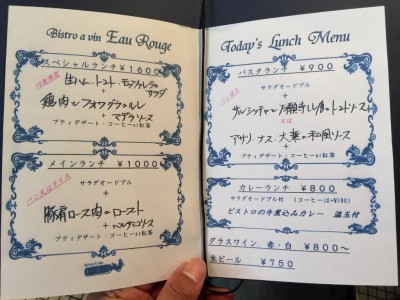 Bistro a vin Eau Rouge
スペシャルランチ ¥1600
生ハム・トマト・モッツァレラのサラダ
+
鶏肉とフォアグラの
+マデラソース
プティデザート・コーヒーor紅茶
メインランチ ¥1000
パン又はライス
サラダオードブル
+
豚肩ロース肉のロースト
プティデザート・コーヒーor紅茶
Today's Lunch Menu
パスタランチ ¥900
サラダオードブル
+
サルシッチャと万願寺しし唐のトマトソース
又は
アサリ・ナス・大葉の和風ソース
プティデザート・コーヒーor紅茶
カレーランチ ¥800
サラダオードブル付 (コーヒーは+¥100)
ビストロの牛煮込みカレー 温玉付
グラスワイン 赤・白 ¥800～
生ビール ¥750